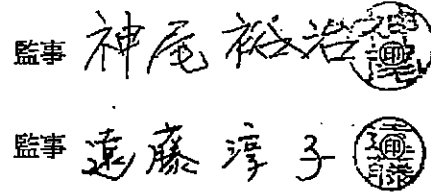 監事 神尾裕治 印
監事 遠藤淳子 印